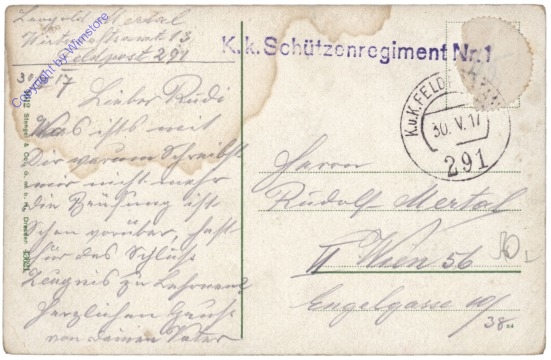 Leopold Mertal
Wirtschaftsamt 13
Feldpost 291
30/5 17
K.k. Schützenregiment Nr. 1
K.u.K. FELD
30. V. 17
291
Copyright by Wimstore
Lieber Rudi
Was ists mit
Dir warum Schreibst
mir nicht mehr
die Prüfung ist
Schon vorüber, hast
für das Schluß
Zeugnis zu
Herzlichen Gruß
von deinen Vater
Herrn
Rudolf Mertal
Wien 56
Engelgasse 10/
38
Stengel & Co., G. m. b. H., Dresden